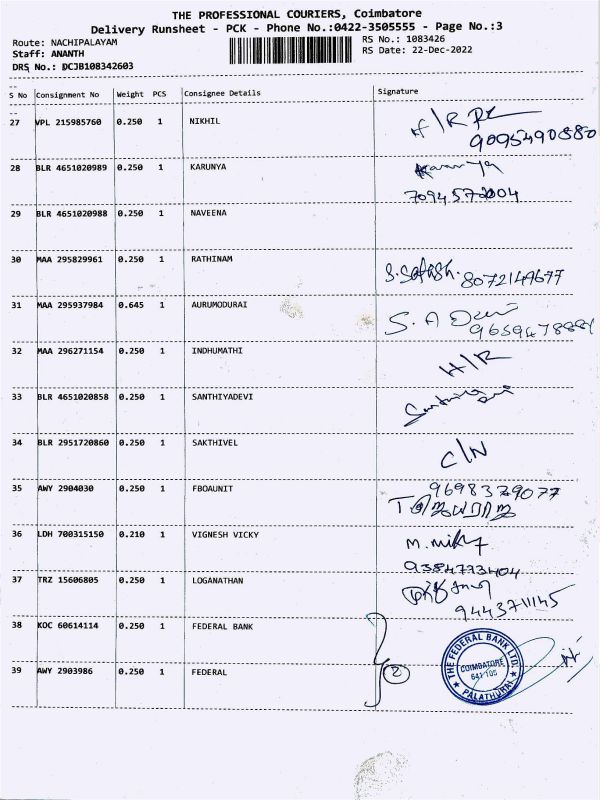 THE PROFESSIONAL COURIERS, Coimbatore
Delivery Runsheet - PCK - Phone No.:0422-3505555 - Page No.:3
Route: NACHIPALAYAM
RS No.: 1083426
Staff: ANANTH
RS Date: 22-Dec-2022
DRS No.: DCJB108342603
S No Consignment No Weight PCS Consignee Details Signature
27 VPL 215985760 0.250 1 NIKHIL H/R
9095490880
28 BLR 4651020989 0.250 1 KARUNYA Karunya
7094572004
29 BLR 4651020988 0.250 1 NAVEENA
30 MAA 295829961 0.250 1 RATHINAM S. Sathish. 8072149677
31 MAA 295937984 0.645 1 AURUMODURAI S. A Devi
32 MAA 296271154 0.250 1 INDHUMATHI H/R
33 BLR 4651020858 0.250 1 SANTHIYADEVI
34 BLR 2951720860 0.250 1 SAKTHIVEL C/N
35 AWY 2904030 0.250 1 FBOAUNIT 9698379077
36 LDH 700315150 0.210 1 VIGNESH VICKY
9384773404
37 TRZ 15606805 0.250 1 LOGANATHAN
9443711145
38 KOC 60614114 0.250 1 FEDERAL BANK
39 AWY 2903986 0.250 1 FEDERAL 2
THE FEDERAL BANK LTD.
COIMBATORE
641 105
PALATHURAI